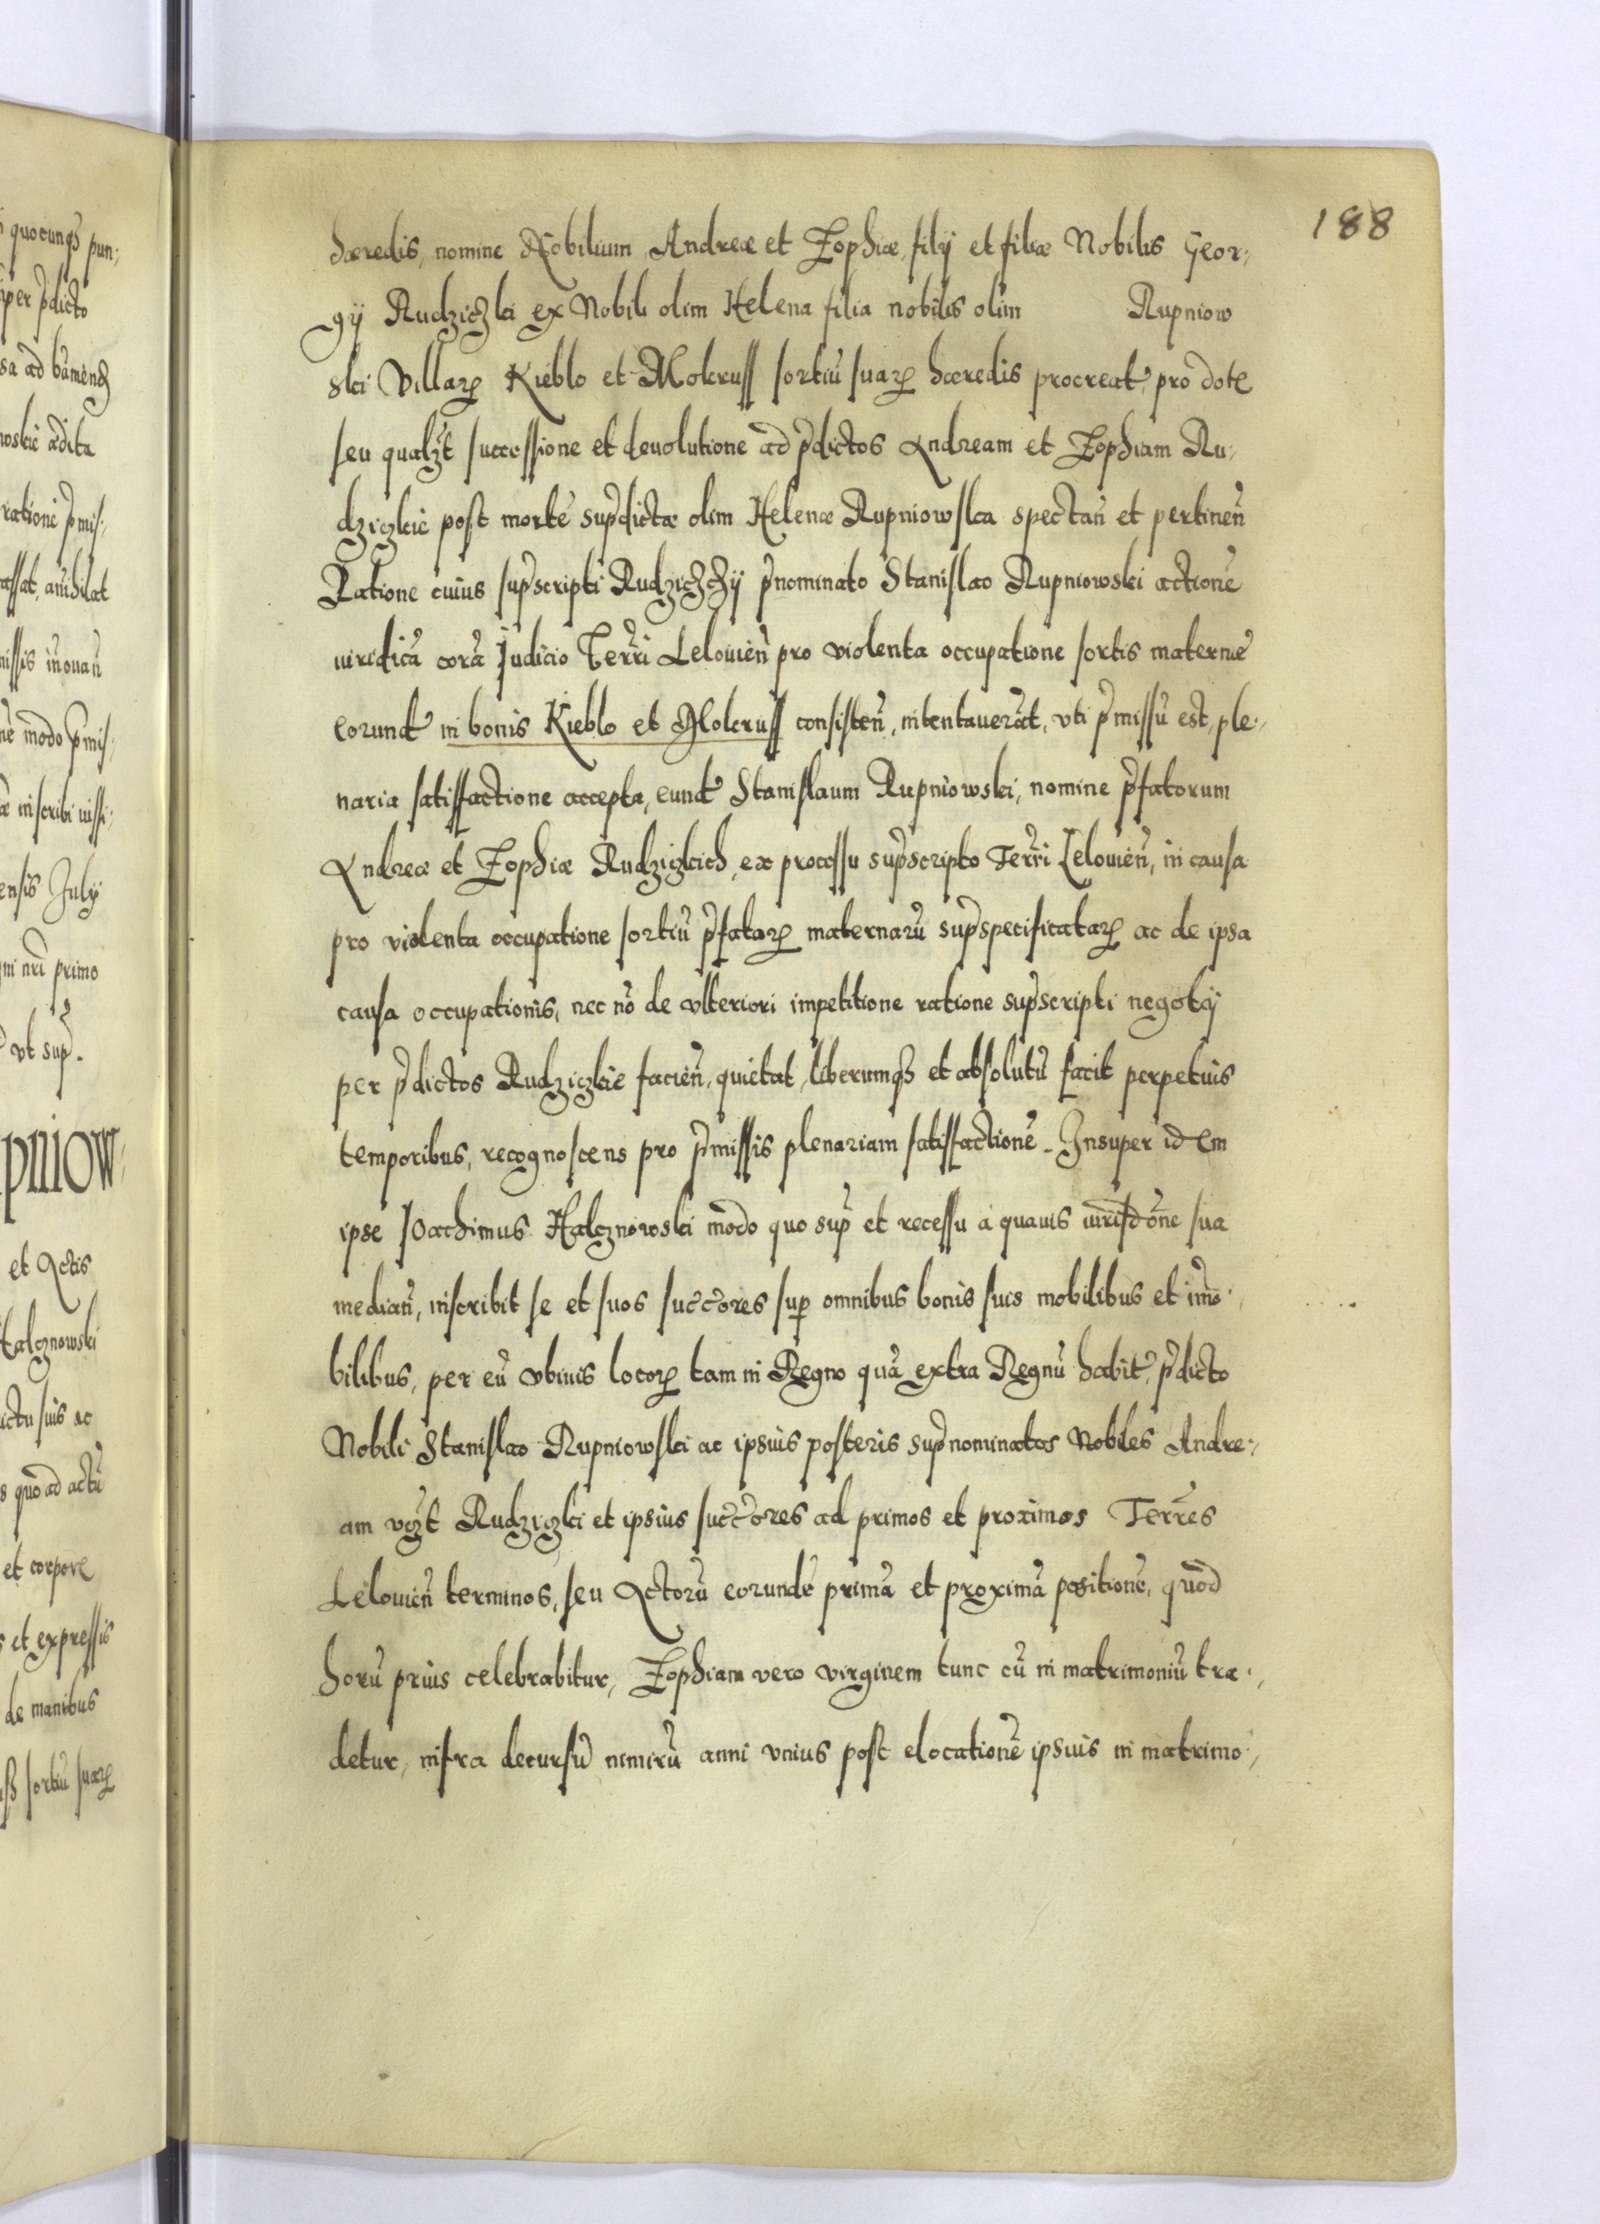 188
hæredis, nomine Nobilium Andreæ et Zophiæ, filij et filiæ Nobilis Geor-,
gij Rudziczki ex Nobili olim Helena filia nobilis olim Rupniow
ski Villarꝝ Kieblo et Mokruss sortiū suarꝝ hæredis procreat, pro dote
seu qualzt successione et deuolutione ad p̄dictos Andream et Zophiam Ru-,
dziczkie post mortē sup̄dictæ olim Helenæ Rupniowska spectan̄ et pertinen̄
Ratione cuius sup̄scripti Rudzichcÿ p̄nominato Stanislao Rupniowski actionē
iuridicā corā Judicio Terrī Lelouien̄ pro violenta occupatione sortis maternæ
eorund in bonis Kieblo et Mokruss consisten̄, intentauerāt, vti p̄missū est, ple-,
naria satisfactione accepta, eund Stanislaum Rupniowski, nomine p̄fatorum
Andreæ et Zophiæ Rudziczkich, ex processu sup̄scripto Terrī Lelouien̄, in causa
pro violenta occupatione sortiū p̄fatarꝝ maternarū sup̄specificatarꝝ ac de ipsa
causa occupationis, nec nō de vlteriori impetitione ratione sup̄scripti negotij
per p̄dictos Rudziczkie facien̄, quietat, liberumqȝ et absolutū facit perpetuis
temporibus, recognoscens pro p̄missis plenariam satisfactionē. Insuper idem
ipse Joachimus Halcznowski mōdo quo sup̄ et recessu a quauis iurisdōne sua
median̄, inscribit se et suos succ̄ores sup omnibus bonis suis mobilibus et im̄o-,
bilibus, per eū vbiuis locorꝝ tam in Regno quā extra Regnū habit, p̄dicto
Nobili Stanislao Rupniowski ac ipsius posteris sup̄nominatos Nobiles Andre-,
am vczt Rudziczki et ipsius succ̄ores ad primos et proximos Terrēs
Lelouien̄ terminos, seu Actorū eorundē primā et proximā positionē, quōd
horū prius celebrabitur, Zophiam vero virginem tunc cū in matrimoniū tra-,
detur, infra decursū nimirū anni vnius post elocationē ipsius in matrimo-,